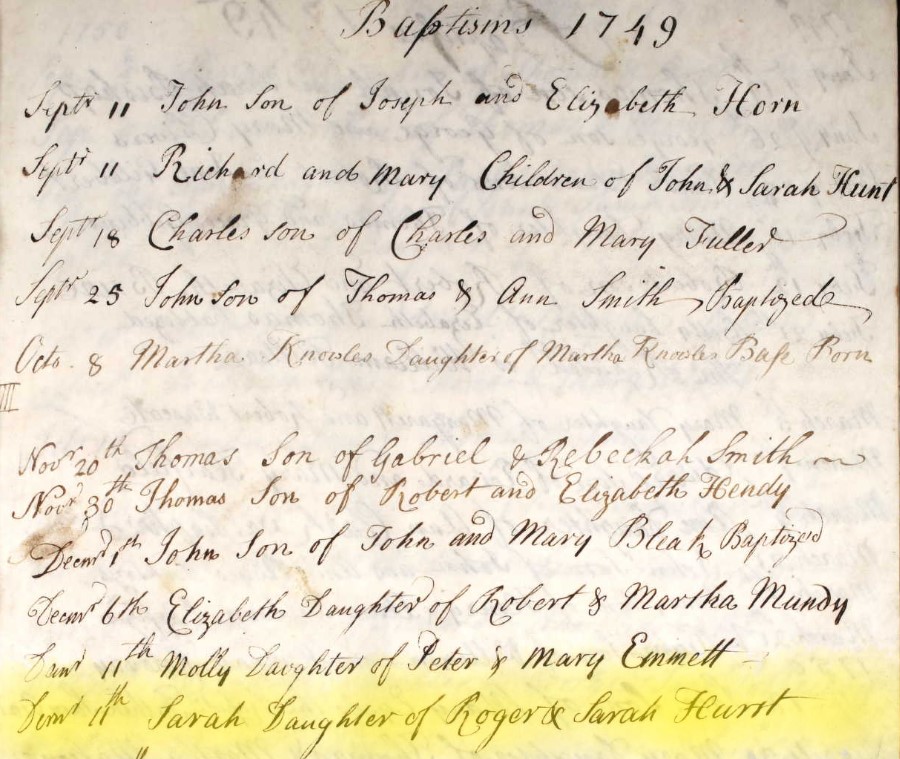 Baptisms 1749
Septr 11 John Son of Joseph and Elizabeth Horn
Septr 11 Richard and Mary Children of John & Sarah Hunt
Septr 18 Charles son of Charles and Mary Fuller
Septr 25 John son of Thomas & Ann Smith Baptized
Octo. 8 Martha Knowles Daughter of Martha Knowles Base Born
III
Novr 20th Thomas Son of Gabriel & Rebeckah Smith
Novr 30th Thomas Son of Robert and Elizabeth Hendy
Decmr 1st John Son of John and Mary Bleak Baptized
Decmr 6th Elizabeth Daughter of Robert & Martha Mundy
11th Molly Daughter of Peter & Mary Emmett
11th Sarah Daughter of Roger & Sarah Hurst